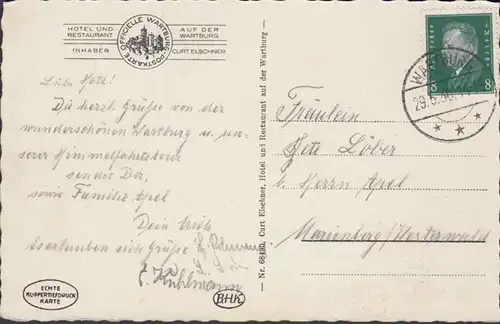 HOTEL UND
RESTAURANT
AUF DER
WARTBURG
INHABER
CURT ELSCHNER
OFFICIELLE WARTBURG-POSTKARTE
Liebe Hete!
Die herzl. Grüße von der
wunderschönen Wartburg u. un-
serer Himmelfahrtstour
sendet Dir,
sowie Familie Apel
Dein Erich
Es erlauben sich Grüße
E. Kuhlmann
ECHTE
KUPFERTIEFDRUCK
KARTE
BHK
Nr. 68480 Curt Elschner, Hotel und Restaurant auf der Wartburg
8 8
WARTBURG
29.5.30
Fräulein
Hete Löber
b. Herrn Apel
Marienberg/Westerwald